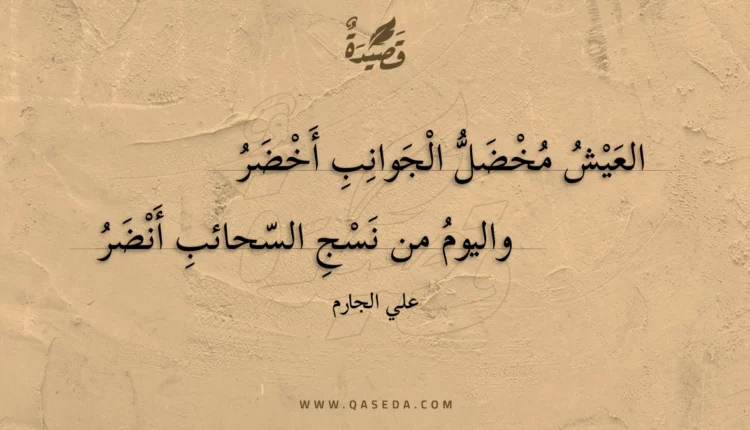 قَصِيْدَةٌ
العَيْشُ مُخْضَلُّ الْجَوانِبِ أَخْضَرُ
واليومُ من نَسْجِ السّحائبِ أَنْضَرُ
علي الجارم
WWW.QASEDA.COM